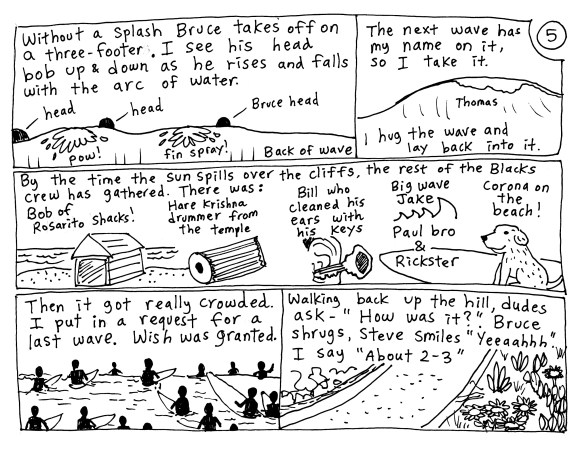 Without a splash Bruce takes off on
a three-footer. I see his head
bob up & down as he rises and falls
with the arc of water.
head
head
Bruce head
pow!
fin spray!
Back of wave
The next wave has
my name on it,
so I take it.
5
Thomas
I hug the wave and
lay back into it.
By the time the sun spills over the cliffs, the rest of the Blacks
crew has gathered. There was:
Bob of
Rosarito Shacks!
Hare Krishna
drummer from
the temple
Bill who
cleaned his
ears with
his keys
Big wave
Jake
Paul bro
&
Rickster
Corona on
the beach!
Then it got really crowded.
I put in a request for a
last wave. Wish was granted.
Walking back up the hill, dudes
ask-"How was it?" Bruce
shrugs, Steve smiles "Yeeaahhh."
I say "About 2-3"